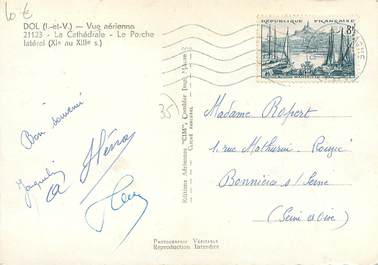 10 €
DOL (I.-et-V.) — Vue aérienne
21123 - La Cathédrale - Le Porche
latéral (XIe au XIIIe s.)
RÉPUBLIQUE FRANÇAISE
8F
35
Bon souvenir
Jacqueline
Editions Aériennes "CIM" Combier Imp. Mâcon
Madame Ropert
1, rue Mathurin
Bonnières s/ Seine
(Seine et Oise)
PHOTOGRAPHIE VÉRITABLE
Reproduction Interdite